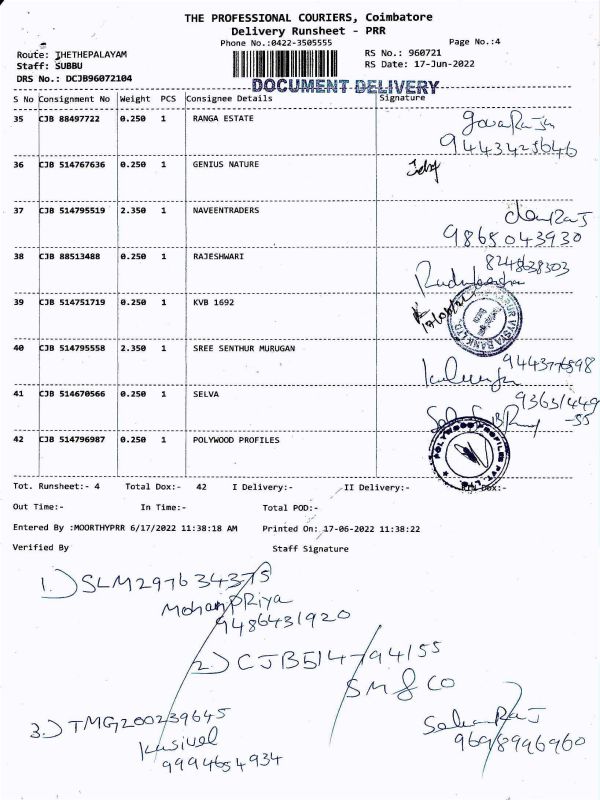 THE PROFESSIONAL COURIERS, Coimbatore
Delivery Runsheet - PRR
Phone No.:0422-3505555 Page No.:4
Route: THETHEPALAYAM RS No.: 960721
Staff: SUBBU RS Date: 17-Jun-2022
DRS No.: DCJB96072104
DOCUMENT DELIVERY
S No Consignment No Weight PCS Consignee Details Signature
35 CJB 88497722 0.250 1 RANGA ESTATE
9443425646
36 CJB 514767636 0.250 1 GENIUS NATURE
37 CJB 514795519 2.350 1 NAVEENTRADERS
9865043930
38 CJB 88513488 0.250 1 RAJESHWARI
8248638303
39 CJB 514751719 0.250 1 KVB 1692
40 CJB 514795558 2.350 1 SREE SENTHUR MURUGAN
41 CJB 514670566 0.250 1 SELVA
93631449
-55
42 CJB 514796987 0.250 1 POLYWOOD PROFILES
POLYWOOD PROFILES PVT. LTD.
Tot. Runsheet:- 4 Total Dox:- 42 I Delivery:- II Delivery:- Dox:-
Out Time:- In Time:- Total POD:-
Entered By :MOORTHYPRR 6/17/2022 11:38:18 AM Printed On: 17-06-2022 11:38:22
Verified By Staff Signature
1.) SLM297634375
Mohan PRiya
9486431920
2.) CJB514794155
SM & CO
3.) TMG200239645
Kusivel
9994654934
9698996960